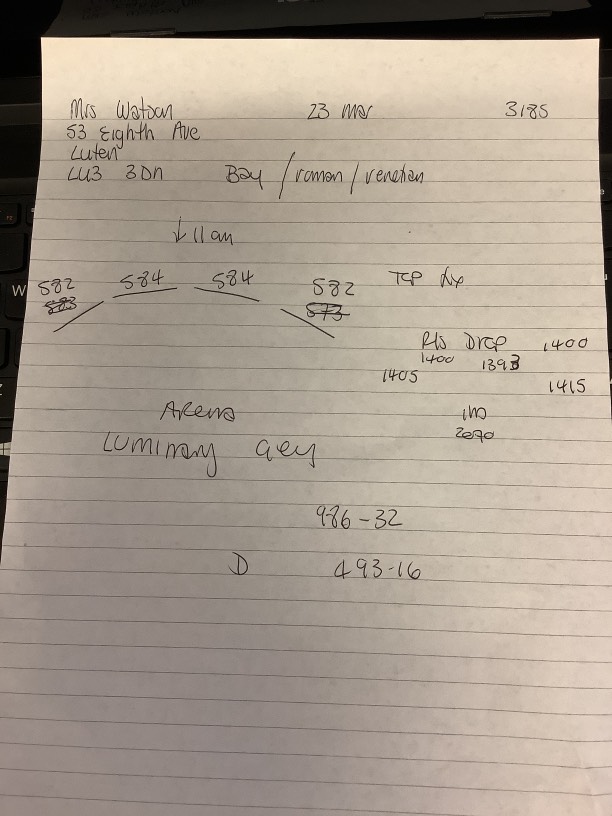 Mrs Watson 23 Mar 3185
53 Eighth Ave
Luten
LU3 3DN Bay / roman / venetian
↓ 11 am
582 584 584 582 TCP fix
583 573
R/S Drop 1400
1400 1393
1405 1415
Arena
2090
Luminary Grey
986-32
D 493-16